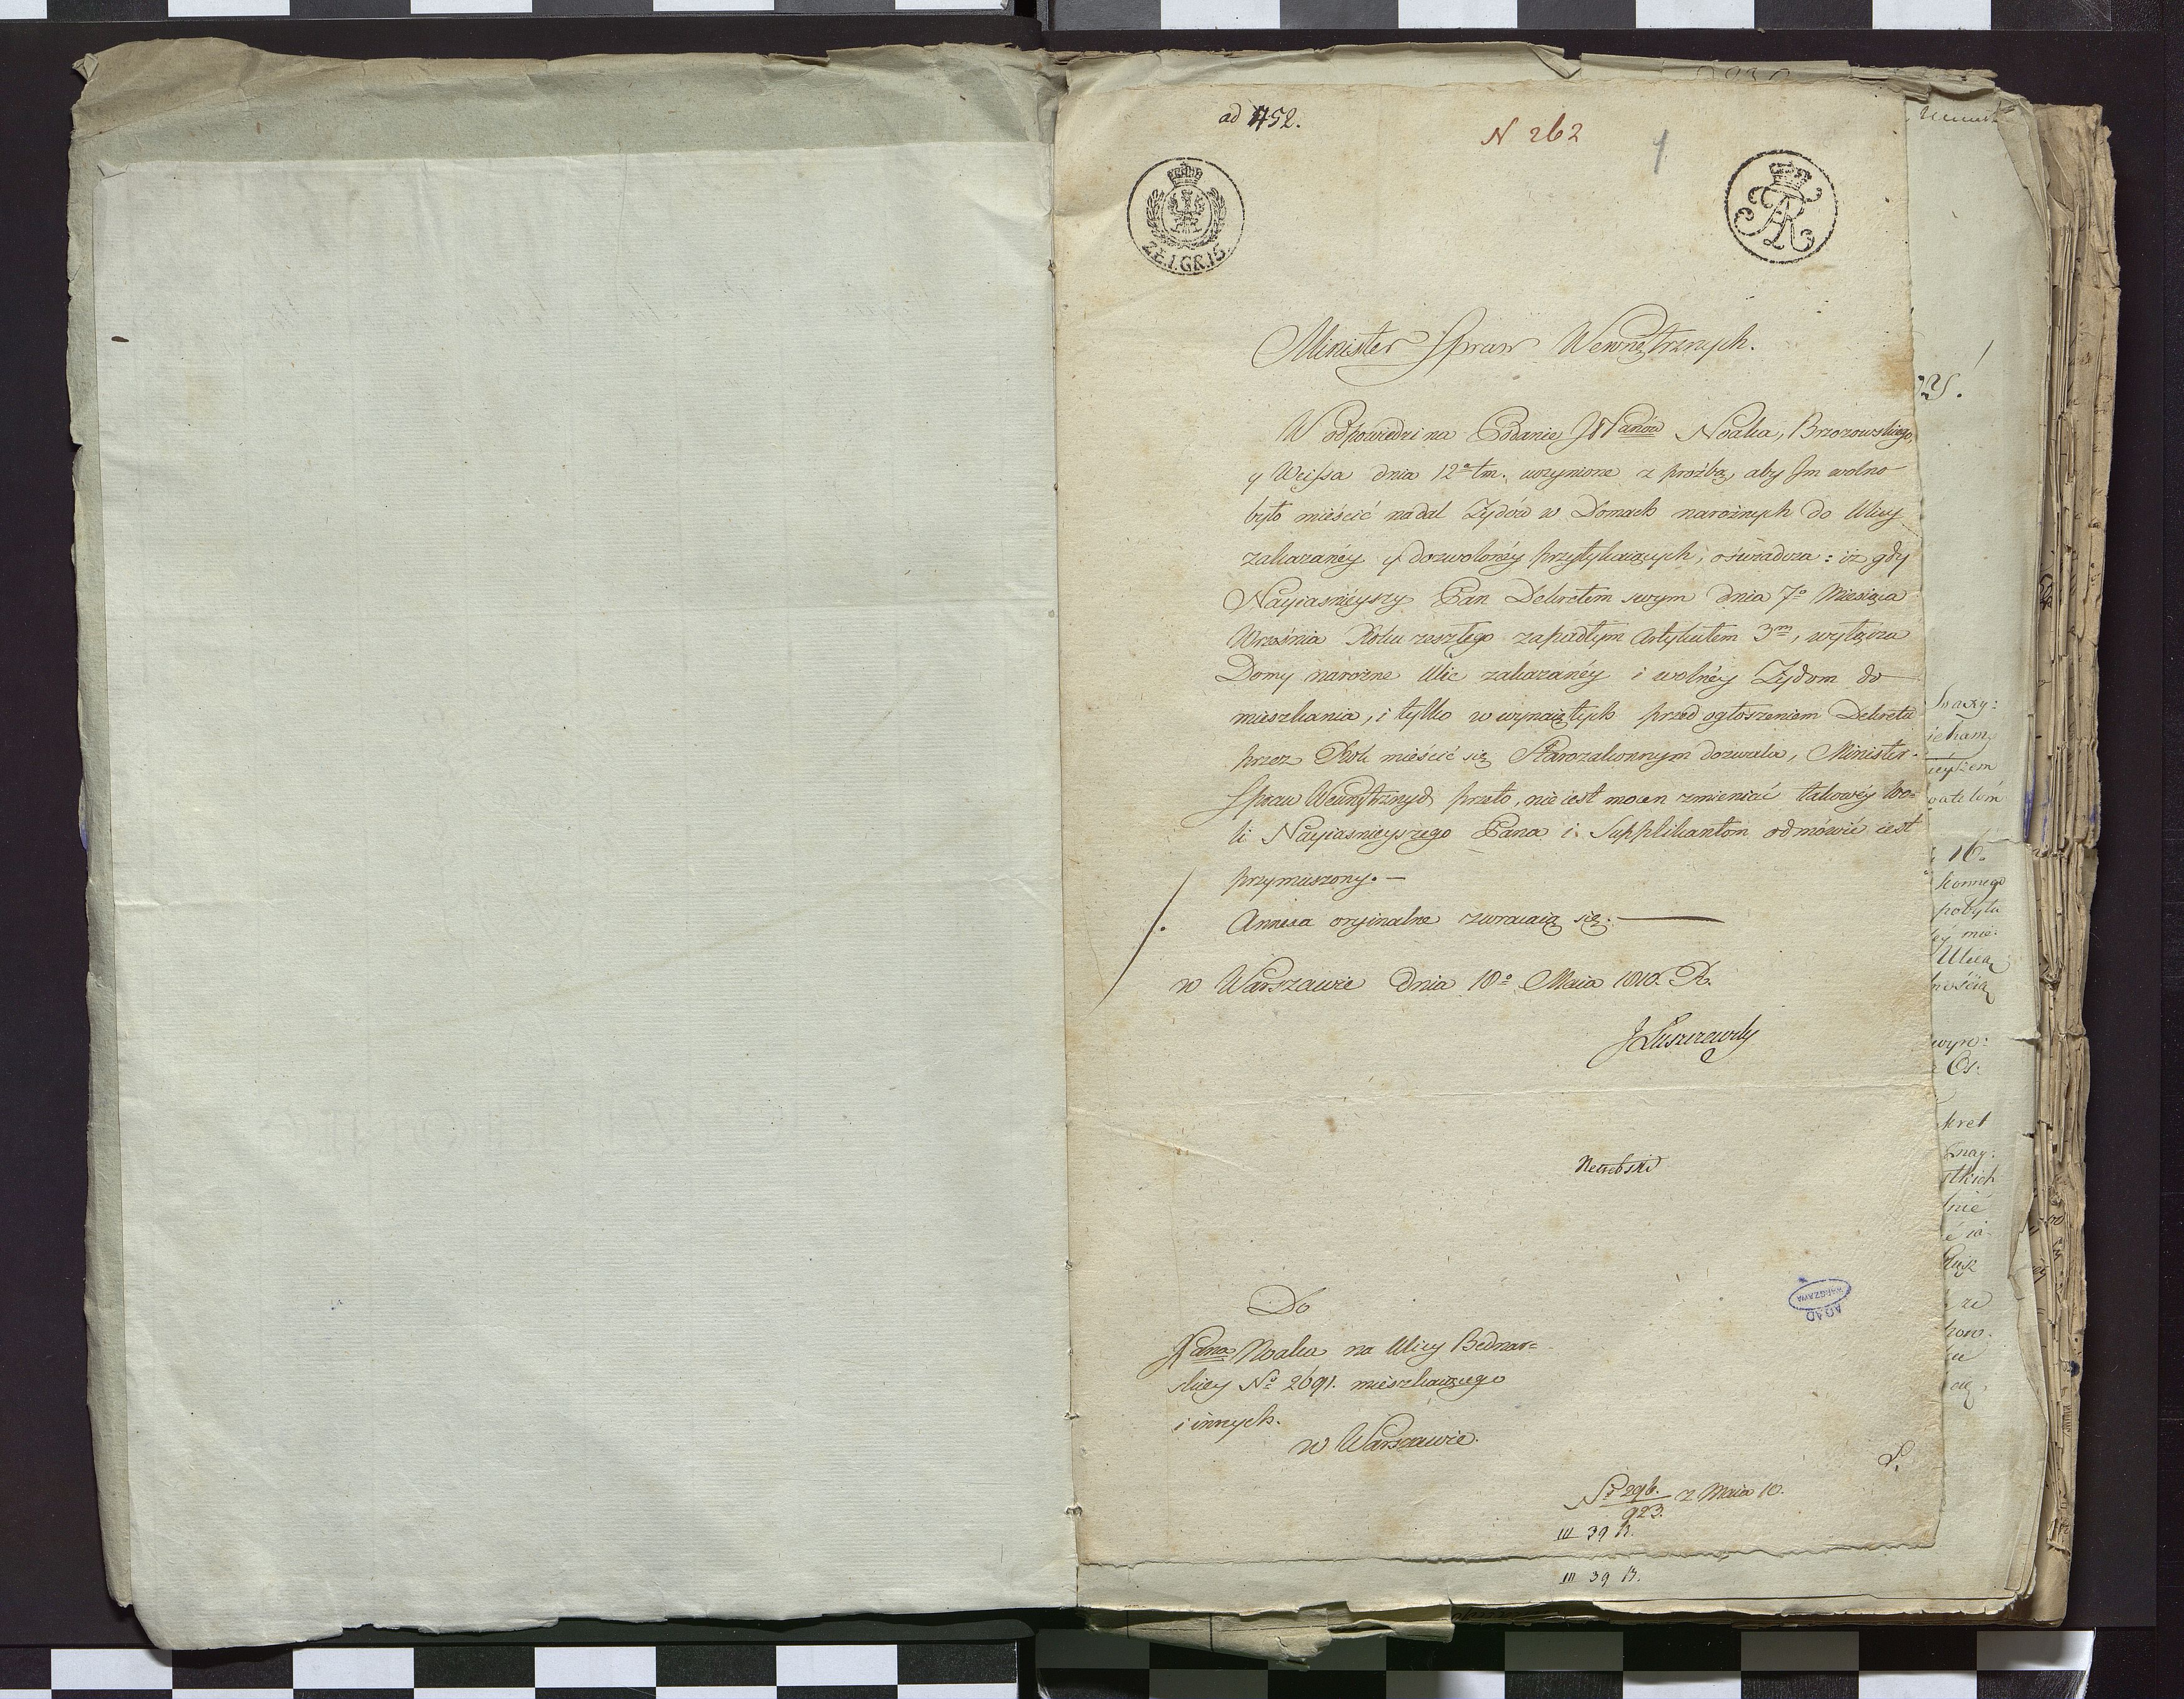 ad 452.
N 262
1
ZŁ.1.GR.15.
Minister Spraw Wewnętrznych.
W odpowiedzi na Podanie JPPanów Noaka, Brzozowskiego,
y Weissa dnia 12º tm. uczynione z prożbą, aby Im wolno
było mieścić nadal Żydów w Domach narożnych do Ulicy
zakazanéy y dozwolonéy przytykaiących, oświadcza: iż gdy
Nayiaśnieyszy Pan Dekretem swym dnia 7º Miesiąca
Września Roku zeszłego zapadłym Artykułem 3m, wyłącza
Domy narożne Ulic zakazanéy i wolnéy Żydom do
mieszkania, i tylko w wynaiętych przed ogłoszeniem Dekretu
przez Rok mieścić się Starozakonnym dozwala, Minister
Spraw Wewnętrznych przeto, nie iest mocen zmieniać takowéy wo=
li Nayiaśnieyszego Pana i Supplikantom odmówić iest
przymuszony. —
Annexa oryinalne zwracaią się. —
w Warszawie dnia 18º Maia 1810. R.
JŁuszczewski
AGAD
WARSZAWA
Do
JPana Noaka na Ulicy Bednar=
skiey Nº 2691. mieszkaiącego
i innych.
w Warszawie.
Nº 296. z Maia 10.
923.
III 39 B.
III 39 B.